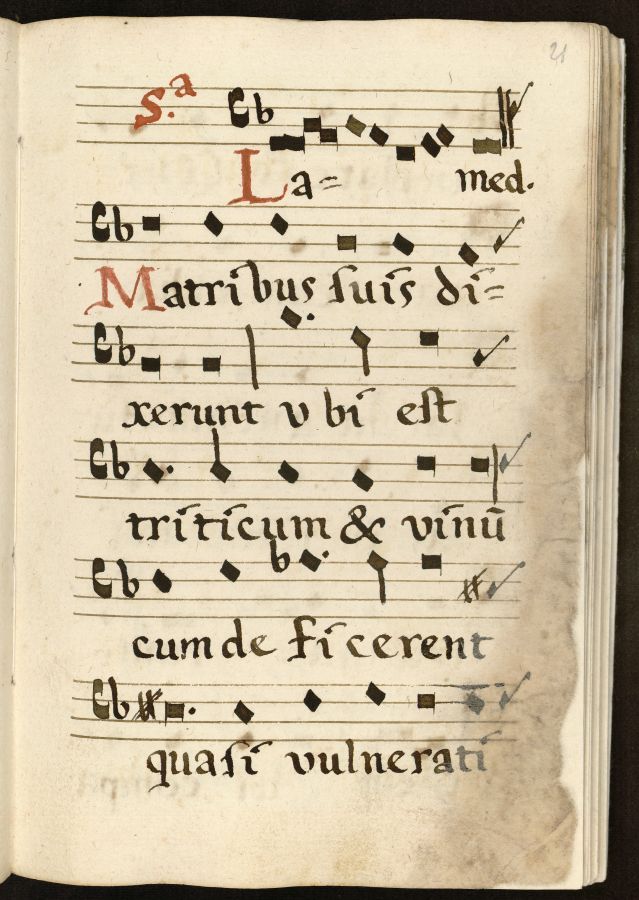 21
S.a
La= med.
Matribus suis di=
xerunt vbi est
triticum & vinū
cum de ficerent
quasi vulnerati